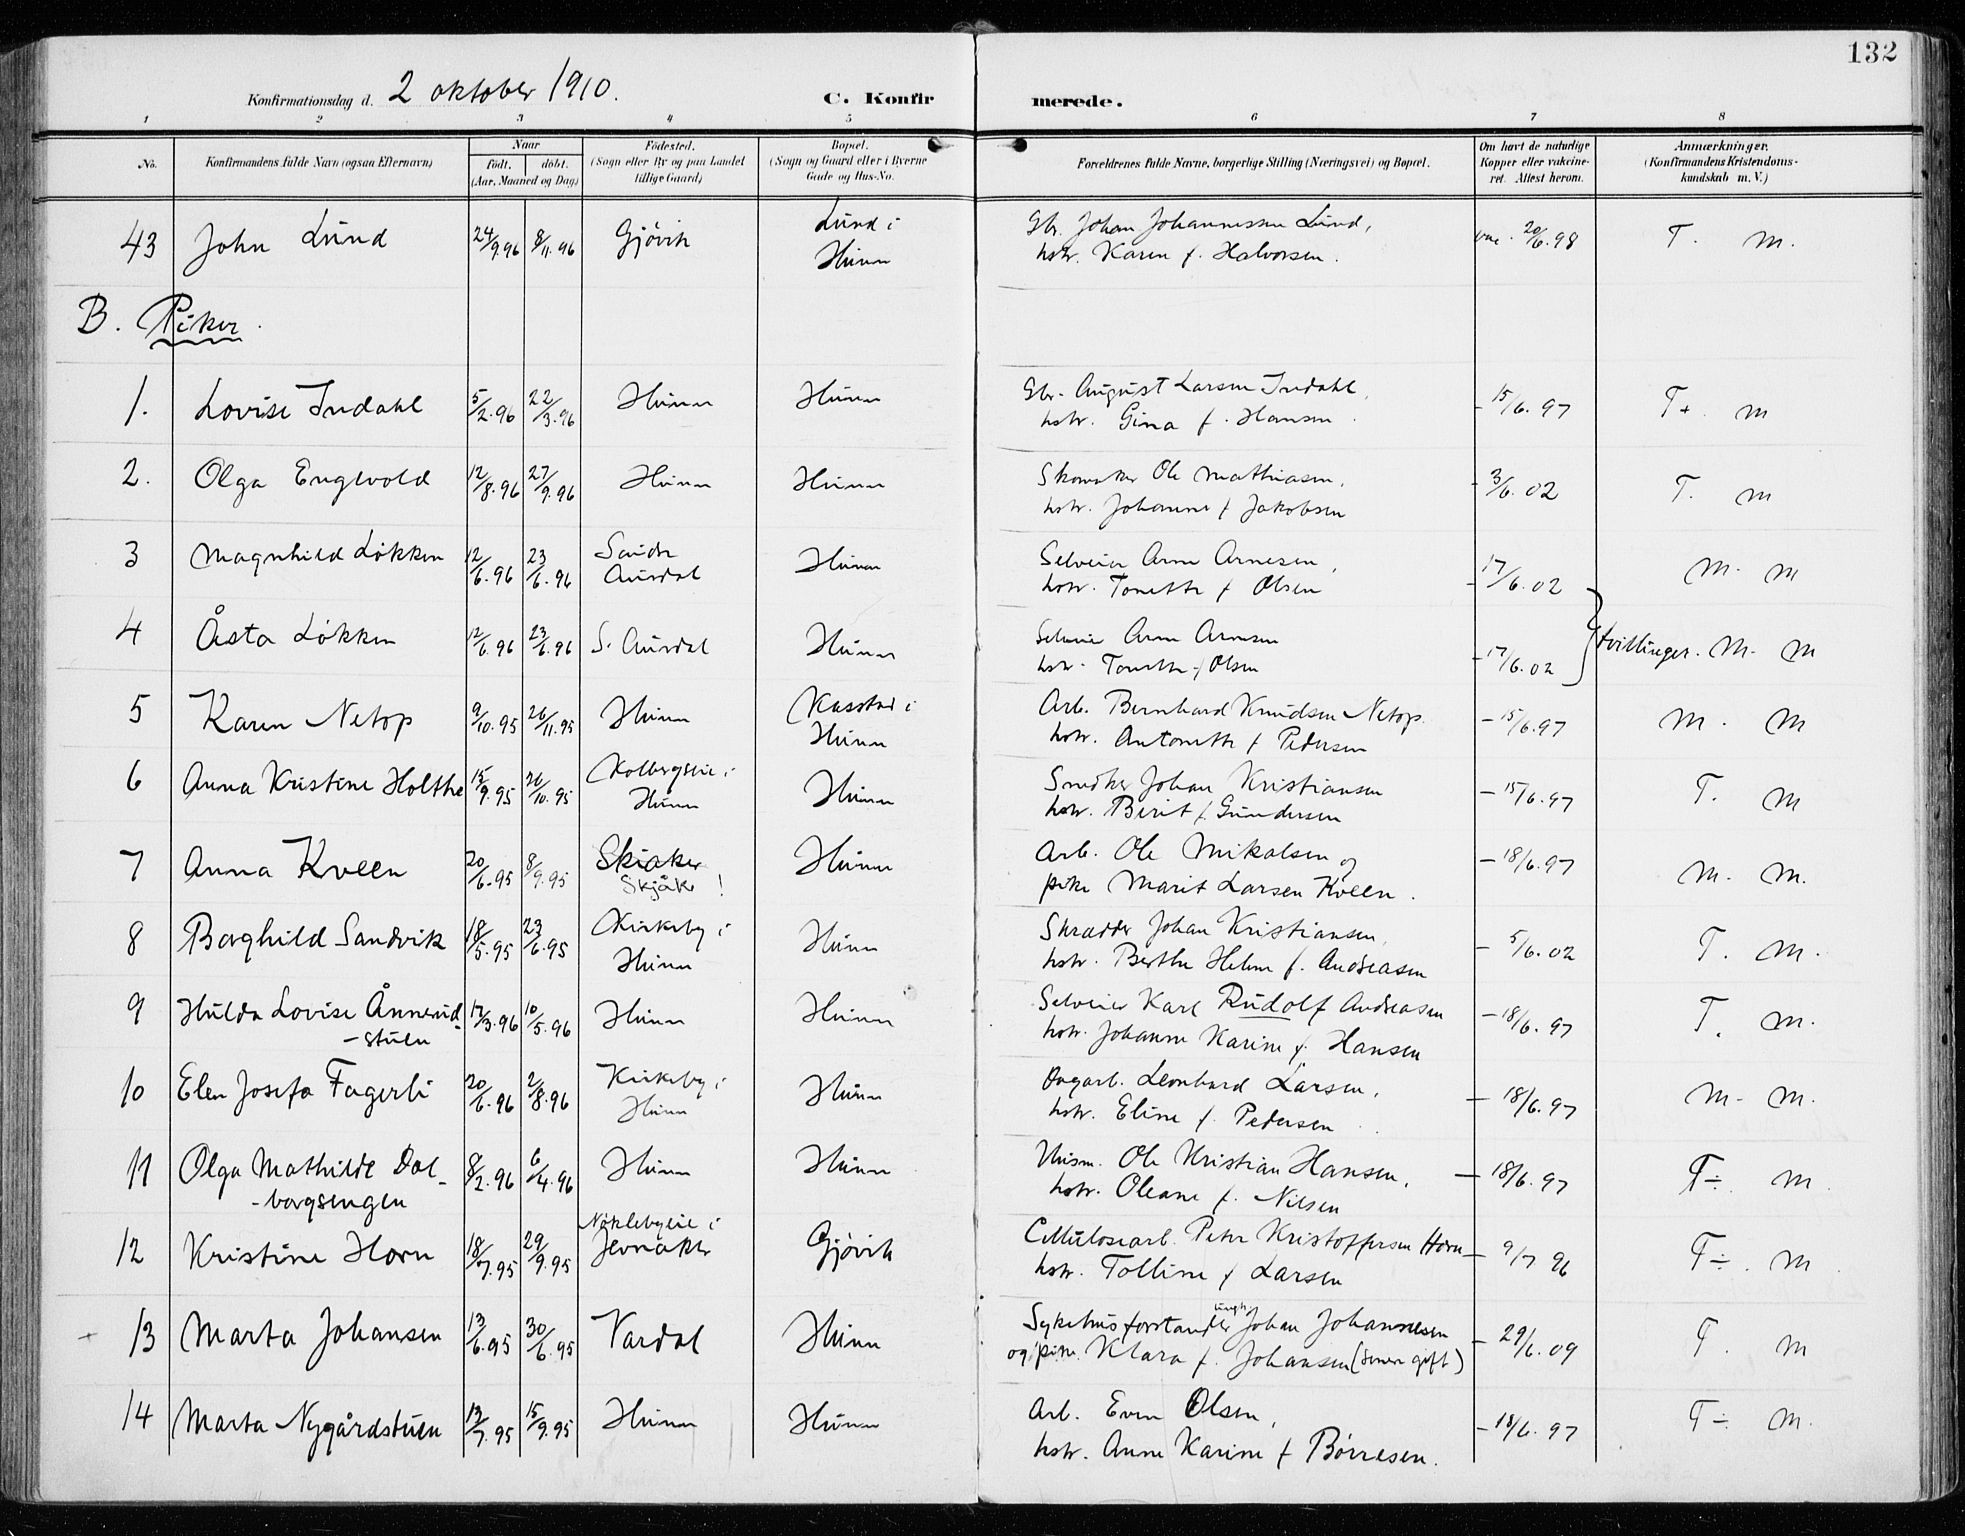 132
Konfirmationsdag d. 2 oktober 1910. C. Konfirmerede.
1 2 3 4 5 6 7 8
No. Konfirmandens fulde Navn (ogsaa Efternavn) Naar født. døbt. (Aar, Maaned og Dag) Fødested. (Sogn eller By og paa Landet tillige Gaard) Bopæl. (Sogn og Gaard eller i Byerne Gade og Hus-No. Forældrenes fulde Navne, borgerlige Stilling (Næringsvei) og Bopæl. Om havt de naturlige Kopper eller vakcineret. Attest herom. Anmærkninger. (Konfirmandens Kristendomskundskab m. V.)
43 John Lund 24/9.96 8/11.96 Gjøvik Lund i Hunn Gbr. Johan Johannessen Lund, vac. 20/6.98 T. M.
hstr. Karen f. Halvorsen.
B. Piker.
1. Lovise Indahl 5/2.96 22/3.96 Hunn Hunn Gbr. August Larsen Indahl, - 15/6.97 T+. M
hstr. Gina f. Hansen.
2. Olga Engevold 12/8.96 27/9.96 Hunn Hunn Skomaker Ole Mathiasen, - 3/6.02 T. M
hstr. Johanne f Jakobsen
3 Magnhild Løkken 12/6.96 23/6.96 Søndre Aurdal Hunn Selveier Arne Arnesen, - 17/6.02 M. M
hstr. Tonette f Olsen
4 Åsta Løkken 12/6.96 23/6.96 S. Aurdal Hunn Selveier Arne Arnesen - 17/6.02 tvillinger. M. M
hstr. Tonette f Olsen
5 Karen Netop 9/10.95 26/11.95 Hunn Kasstad i Hunn Arb. Bernhard Knudsen Netop. - 15/6.97 M. M
hstr. Antonette f Pedersen
6 Anna Kristine Holthe 15/9.95 26/10.95 Kolbergseie i Hunn Hunn Snedker Johan Kristiansen - 15/6.97 T. M
hstr. Birit f. Gundersen
7 Anna Kveen 20/6.95 8/9.95 Skiaker Skjåk! Hunn Arb. Ole Mikalsen og - 18/6.97 M. M.
pike Marit Larsen Kveen.
8 Borghild Sandvik 18/5.95 23/6.95 Kirkeby i Hunn Hunn Skrædder Johan Kristiansen, - 5/6.02 T. M.
hstr. Berthe Helene f. Andreasen
9 Hulda Lovise Ånnerud- 17/3.96 10/5.96 Hunn Hunn Selveier Karl Rudolf Andreasen - 18/6.97 T. M.
-stuen hstr. Johanne Karine f. Hansen
10 Elen Josefa Fagerli 20/6.96 2/8.96 Kirkeby i Hunn Hunn Dagarb. Leonhard Larsen, - 18/6.97 M. M.
hstr. Eline f. Pedersen
11 Olga Mathilde Dal- 8/2.96 6/4.96 Hunn Hunn Husm. Ole Kristian Hansen, - 18/6.97 T÷. M.
-borgsengen hstr. Oleane f. Nilsen
12 Kristine Horn 18/7.95 29/9.95 Nøklebyeie i Jevnaker Gjøvik Cellulosearb. Peter Kristoffersen Horn - 9/7 96 T÷. M.
hstr. Tolline f Larsen
13 Marta Johansen 13/6.95 30/6.95 Vardal Hunn Sykehusforstander ungk. Johan Johannesen - 29/6.09 T. M
og pike. Klara f. Johansen (senere gift)
14 Marta Nygårdstuen 13/7.95 15/9.95 Hunn Hunn Arb. Even Olsen, - 18/6.97 T÷. M.
hstr. Anne Karine f Børresen.